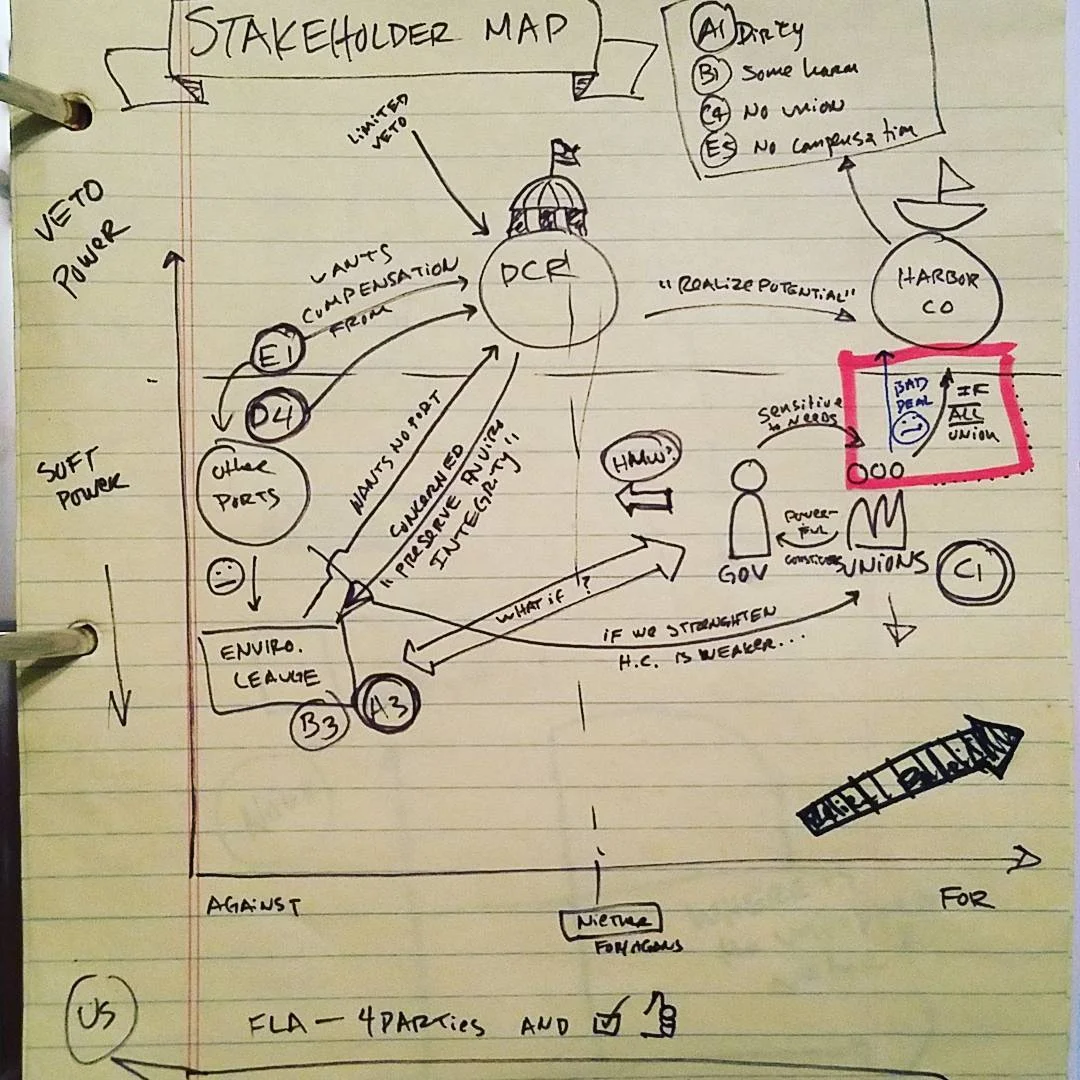 STAKEHOLDER MAP
A1 Dirty
B1 Some harm
C4 No union
E5 No compensation
LIMITED
VETO
VETO
POWER
WANTS
COMPENSATION
FROM
DCR
"REALIZE POTENTIAL"
HARBOR
CO
E1
D4
BAD
DEAL
IF
ALL
UNION
sensitive
to NEEDS
SOFT
POWER
OTHER
PORTS
WANTS NO PORT
CONCERNED
"PRESERVE ENVIRO
INTEGRITY"
HMW?
POWER-
FUL
GOV
UNIONS
C1
WHAT IF ?
IF WE STRENGHTEN
H.C. IS WEAKER...
ENVIRO.
LEAUGE
B3
A3
AGAINST
FOR
NIETHER
FOR/AGANS
US
FLA — 4 PARTIES AND